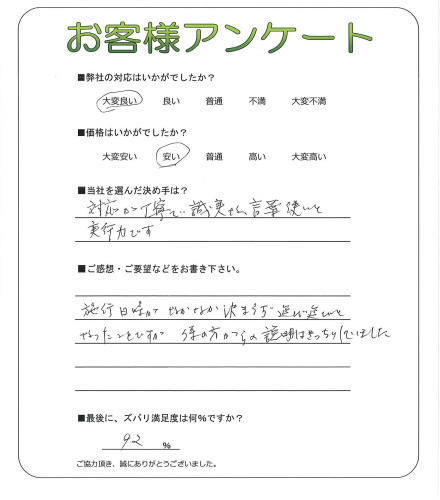 お客様アンケート
■弊社の対応はいかがでしたか？
大変良い 良い 普通 不満 大変不満
■価格はいかがでしたか？
大変安い 安い 普通 高い 大変高い
■当社を選んだ決め手は？
対応が丁寧で誠実さ、言葉使いと
実行力です
■ご感想・ご要望などをお書き下さい。
施行日時がなかなか決まらず延び延びと
なったことですが 様の方からの説明はきっちりしていました
■最後に、ズバリ満足度は何％ですか？
92 %
ご協力頂き、誠にありがとうございました。